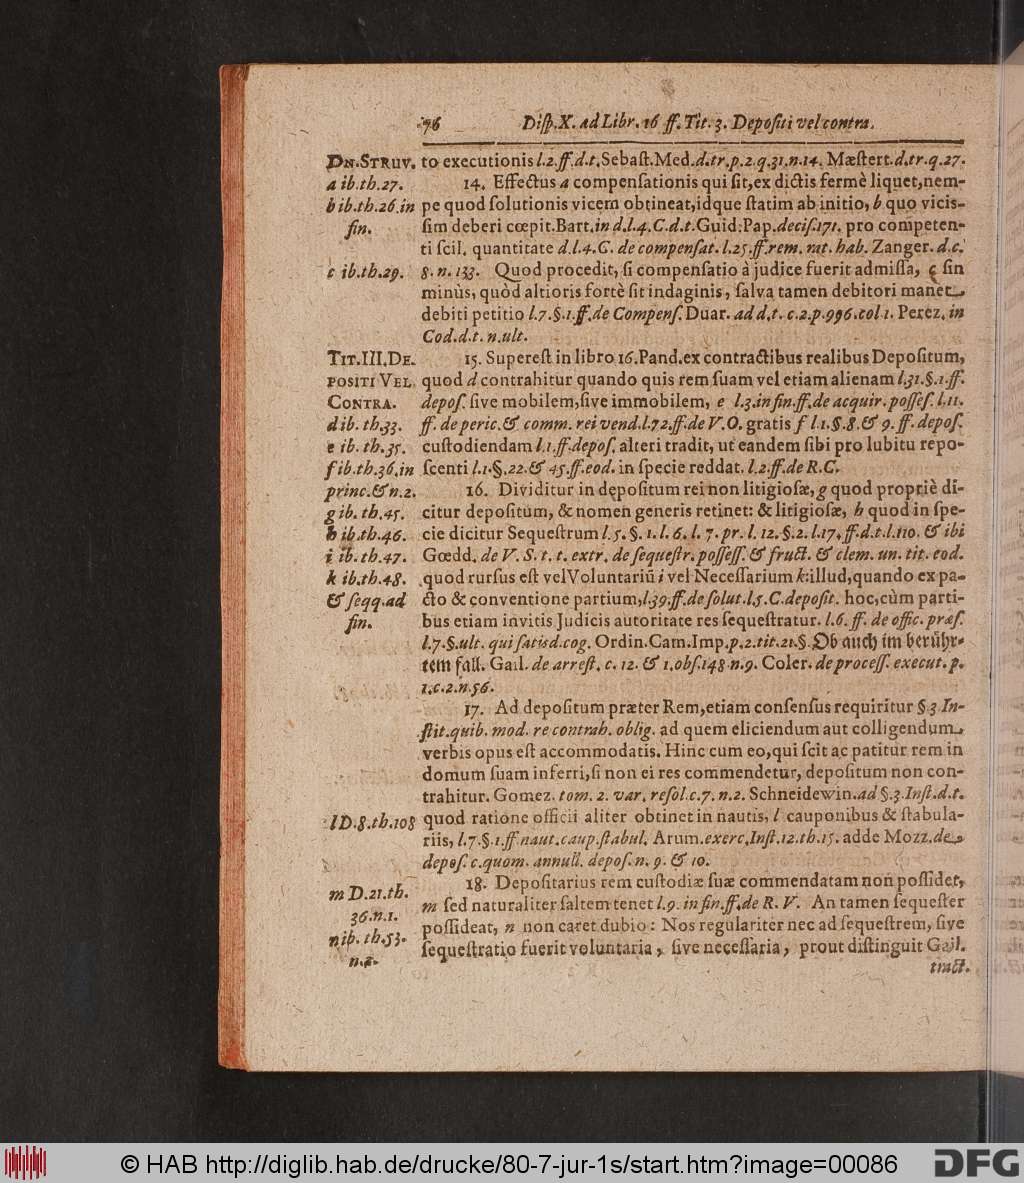 76 Diſp. X. ad Libr. 16 ff. Tit. 3. Depoſiti vel contra.
DN. STRUV. to executionis l. 2. ff. d. t. Sebaſt. Med. d. tr. p. 2. q. 31. n. 14. Mæſtert. d. tr. q. 27.
a ib. th. 27. 14. Effectus a compenſationis qui ſit, ex dictis fermè liquet, nem-
b ib. th. 26. in pe quod ſolutionis vicem obtineat, idque ſtatim ab initio, b quo vicis-
fin. ſim deberi cœpit. Bart. in d. l. 4. C. d. t. Guid. Pap. deciſ. 171. pro competen-
ti ſcil. quantitate d. l. 4. C. de compenſat. l. 25. ff. rem. rat. hab. Zanger. d. c.
c ib. th. 29. 8. n. 133. Quod procedit, ſi compenſatio à judice fuerit admiſſa, c ſin
minùs, quòd altioris fortè ſit indaginis, ſalva tamen debitori manet
debiti petitio l. 7. §. 1. ff. de Compenſ. Duar. ad d. t. c. 2. p. 996. col 1. Perez. in
Cod. d. t. n. ult.
TIT. III. DE. 15. Supereſt in libro 16. Pand. ex contractibus realibus Depoſitum,
POSITI VEL quod d contrahitur quando quis rem ſuam vel etiam alienam l. 31. §. 1. ff.
CONTRA. depoſ. ſive mobilem, ſive immobilem, e l. 3. in fin. ff. de acquir. poſſeſ. l. 11.
d ib. th. 33. ff. de peric. & comm. rei vend. l. 72. ff. de V. O. gratis f l. 1. §. 8. & 9. ff. depoſ.
e ib. th. 35. cuſtodiendam l. 1. ff. depoſ. alteri tradit, ut eandem ſibi pro lubitu repo-
f ib. th. 36. in ſcenti l. 1. §. 22. & 45. ff. eod. in ſpecie reddat. l. 2. ff. de R. C.
princ. & n. 2. 16. Dividitur in depoſitum rei non litigioſæ, g quod propriè di-
g ib. th. 45. citur depoſitum, & nomen generis retinet: & litigioſæ, h quod in ſpe-
h ib. th. 46. cie dicitur Sequeſtrum l. 5. §. 1. l. 6. l. 7. pr. l. 12. §. 2. l. 17. ff. d. t. l. 110. & ibi
i ib. th. 47. Gœdd. de V. S. t. t. extr. de ſequeſtr. poſſeſſ. & fruct. & clem. un. tit. eod.
k ib. th. 48. quod rurſus eſt vel Voluntariũ i vel Neceſſarium k: illud, quando ex pa-
& ſeqq. ad cto & conventione partium, l. 39. ff. de ſolut. l. 5. C. depoſit. hoc, cùm parti-
fin. bus etiam invitis Judicis autoritate res ſequeſtratur. l. 6. ff. de offic. præſ.
l. 7. §. ult. qui ſatisd. cog. Ordin. Cam. Imp. p. 2. tit. 21. §. Ob auch im berühr-
tem fall. Gail. de arreſt. c. 12. & 1. obſ. 148 n. 9. Coler. de proceſſ. execut. p.
1. c. 2. n. 56.
17. Ad depoſitum præter Rem, etiam conſenſus requiritur §. 3 In-
ſtit. quib. mod. re contrah. oblig. ad quem eliciendum aut colligendum
verbis opus eſt accommodatis. Hinc cum eo, qui ſcit ac patitur rem in
domum ſuam inferri, ſi non ei res commendetur, depoſitum non con-
trahitur. Gomez. tom. 2. var. reſol. c. 7. n. 2. Schneidewin. ad §. 3. Inſt. d. t.
l D. 8. th. 108 quod ratione officii aliter obtinet in nautis, l cauponibus & ſtabula-
riis, l. 7. §. 1. ff. naut. caup. ſtabul. Arum. exerc. Inſt. 12. th. 15. adde Mozz. de
depoſ. c. quom. annull. depoſ. n. 9. & 10.
m D. 21. th. 18. Depoſitarius rem cuſtodiæ ſuæ commendatam non poſſidet,
36. n. 1. m ſed naturaliter ſaltem tenet l. 9. in fin. ff. de R. V. An tamen ſequeſter
n ib. th. 53. poſſideat, n non caret dubio: Nos regulariter nec ad ſequeſtrem, ſive
n. 2. ſequeſtratio fuerit voluntaria, ſive neceſſaria, prout diſtinguit Gail.
tract.
© HAB http://diglib.hab.de/drucke/80-7-jur-1s/start.htm?image=00086
DFG